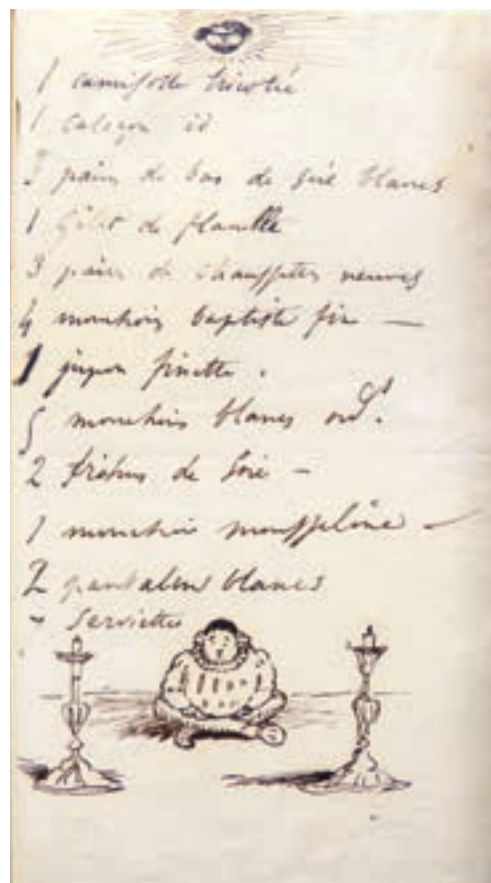 1 camisolle tricotté
1 caleçon id
3 pairs de bas de soie blancs
1 Gilet de flanelle
3 pairs de chaussettes neuves
4 mouchoirs baptiste fin —
1 jupon finette .
5 mouchoirs blancs ord.
2 fichus de soie —
1 mouchoir mousseline —
2 pantalons blancs
serviettes